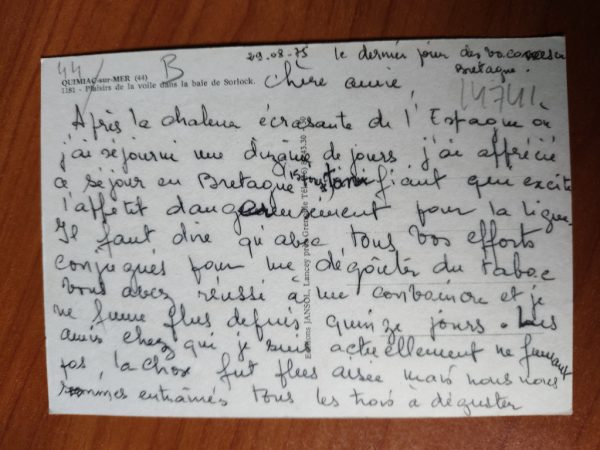 44
B
QUIMIAC-sur-MER (44)
1151 - Plaisirs de la voile dans la baie de Sorlock.
29.08.75 le dernier jour des vacances en
Bretagne.
Chère amie,
14741
Après la chaleur écrasante de l'Espagne où
j'ai séjourné une dizaine de jours, j'ai apprécié
ce séjour en Bretagne fiant qui excite
l'appétit dangereusement pour la ligne.
Il faut dire qu'avec tous vos efforts
conjugués pour me dégoûter du tabac
vous avez réussi à me convaincre et je
ne fume plus depuis quinze jours. Les
amis chez qui je suis actuellement ne fumant
pas, la chose fut plus aisée mais nous nous
sommes entraînés tous les trois à déguster
Editions JANSOL, Lancey près Grenoble Tél.